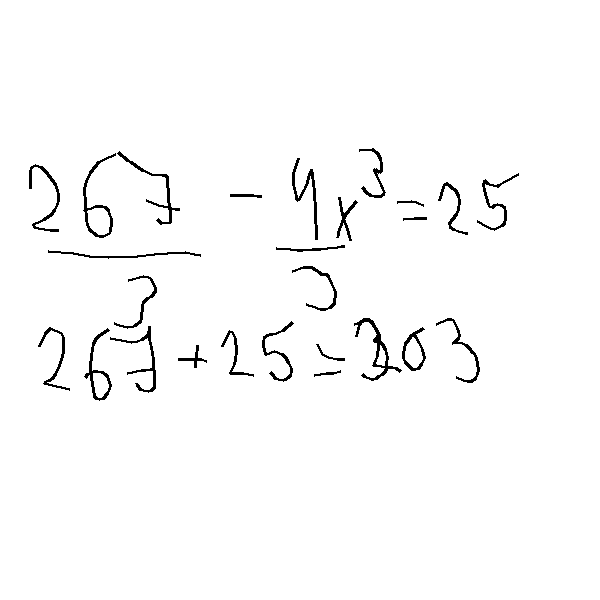 267/3 - 4x³/3 = 25
267 + 25 = 303